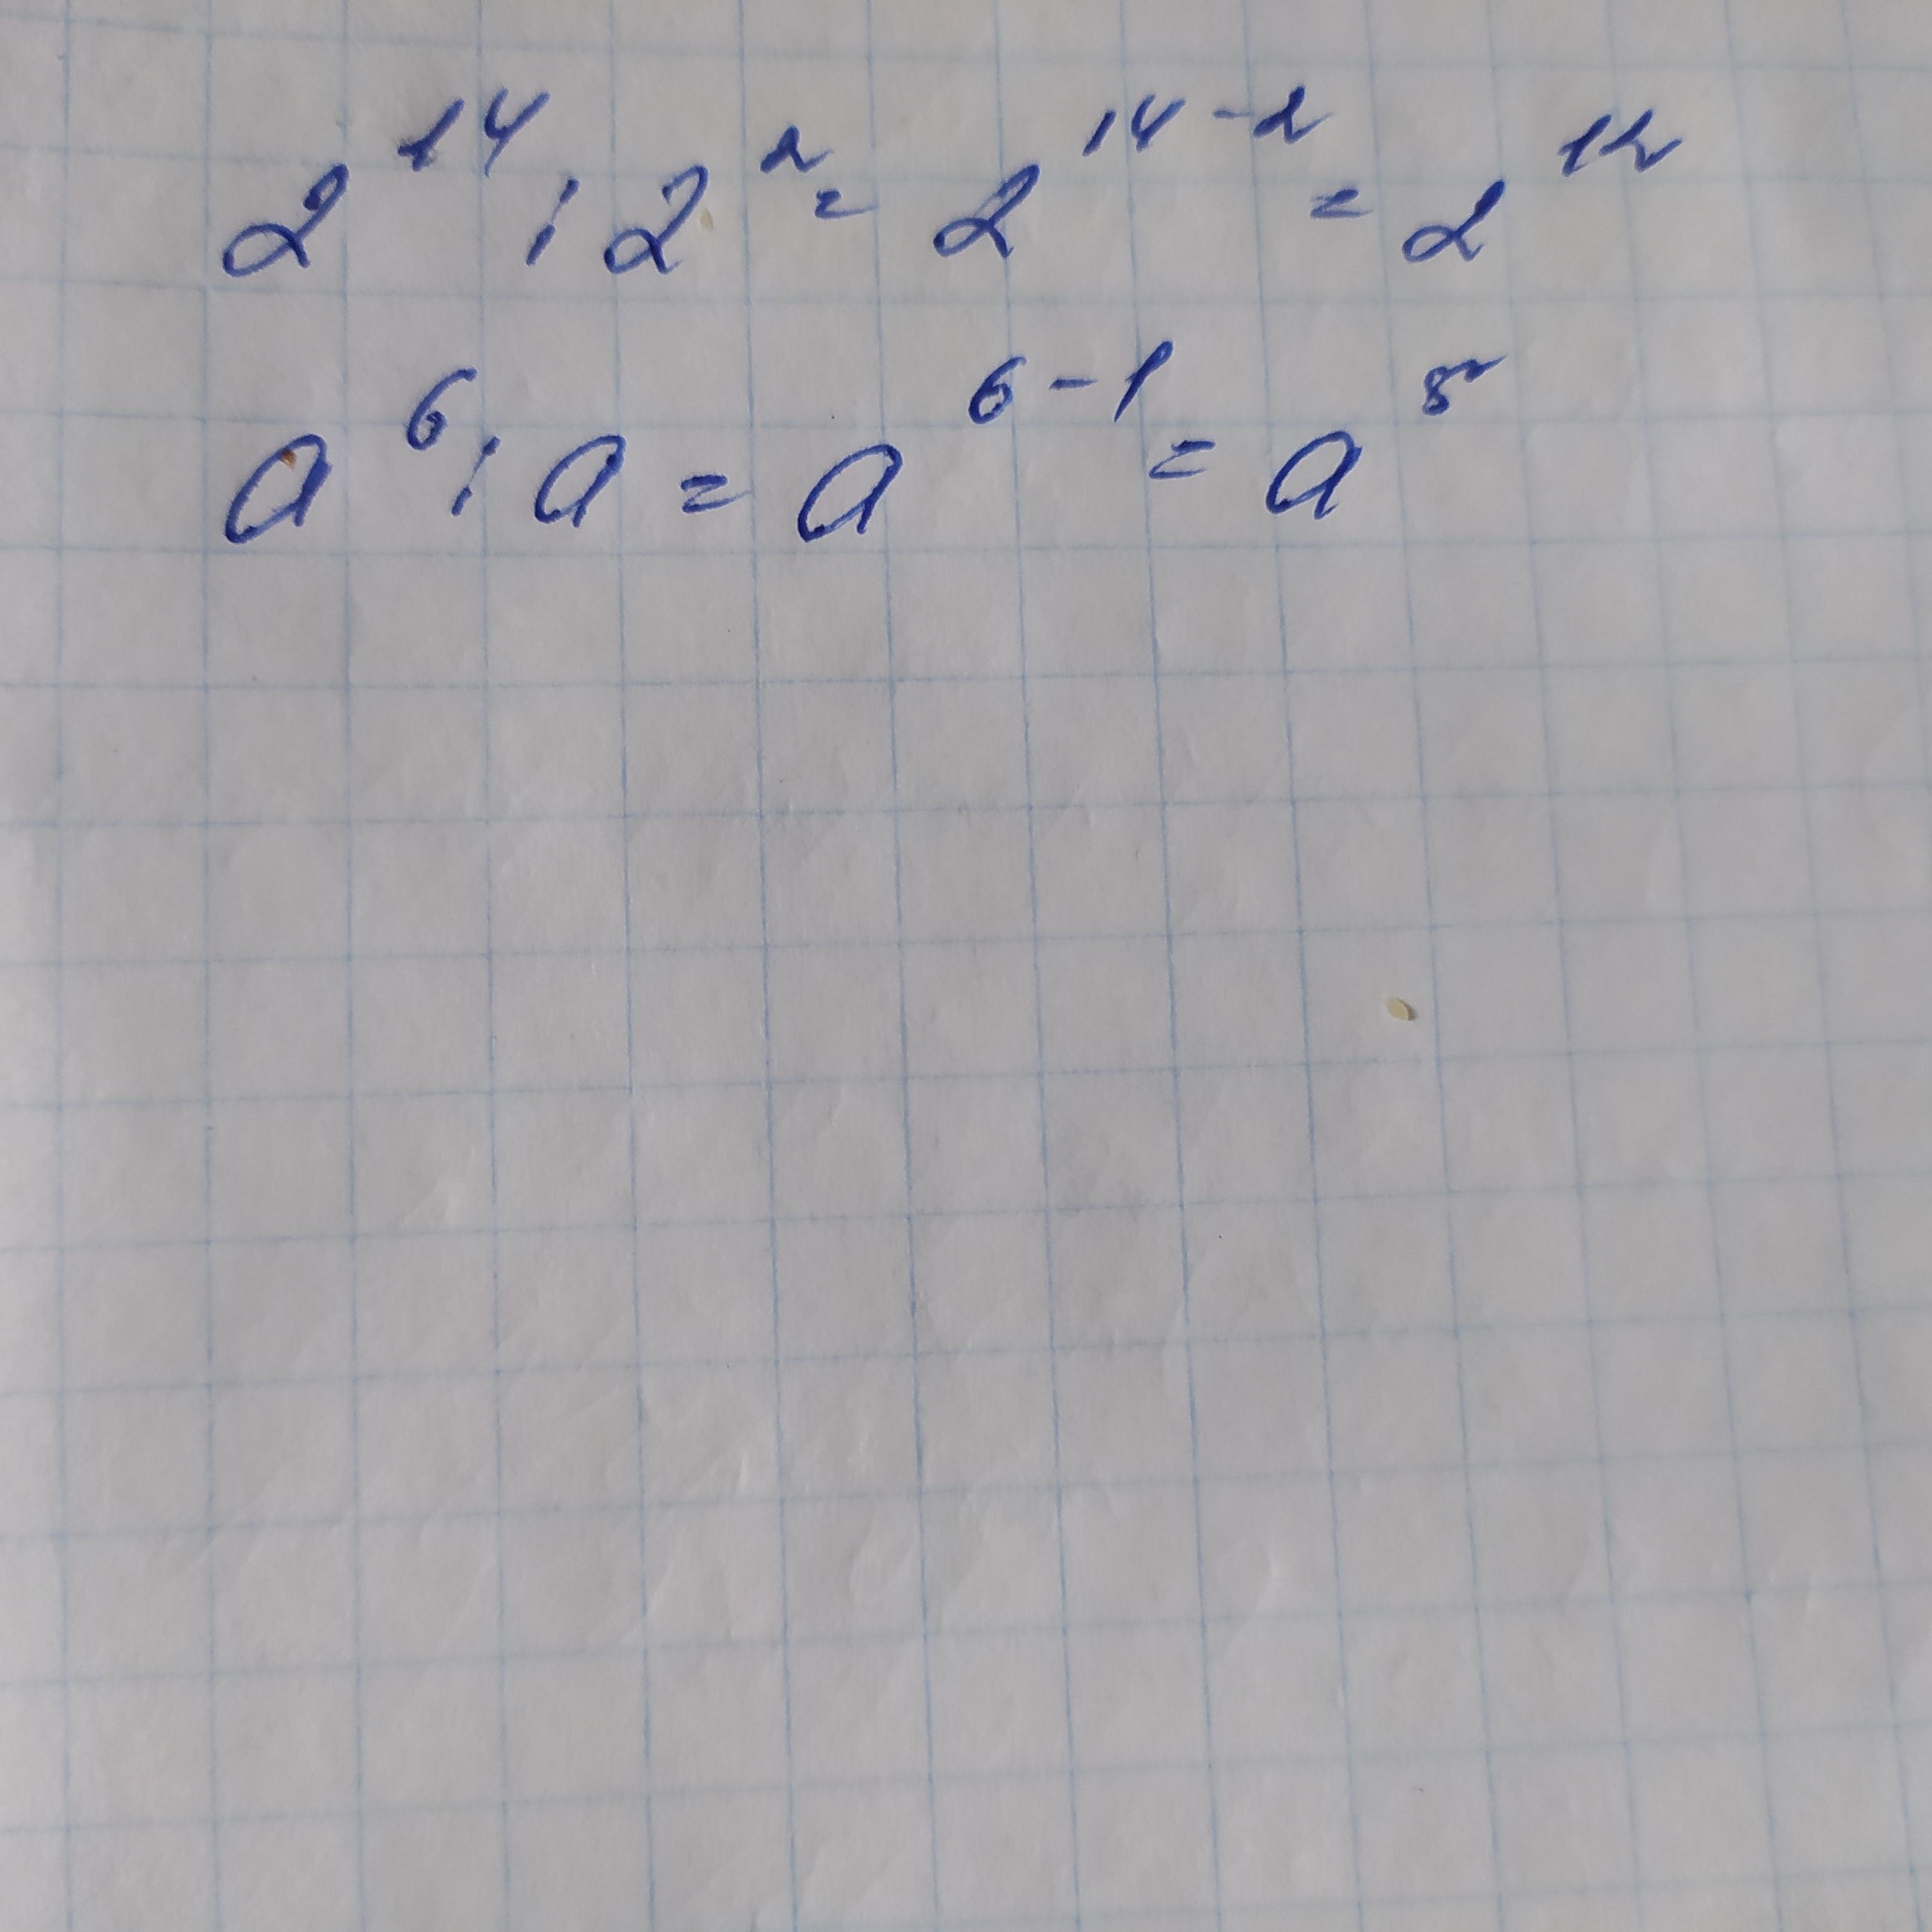 2¹⁴ : 2² = 2¹⁴⁻² = 2¹²
a⁶ : a = a⁶⁻¹ = a⁵